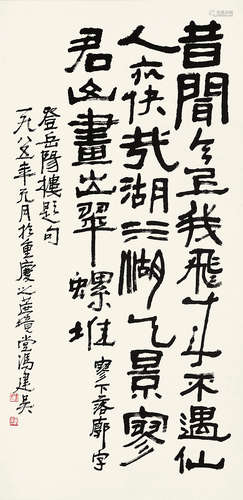 昔聞今上我飛来不遇仙
人亦快哉湖水湖天景寥
君山畫出翠螺堆 寥下落廓字
登岳陽樓題句
一九八五年元月於重慶之蔗境堂馮建吳